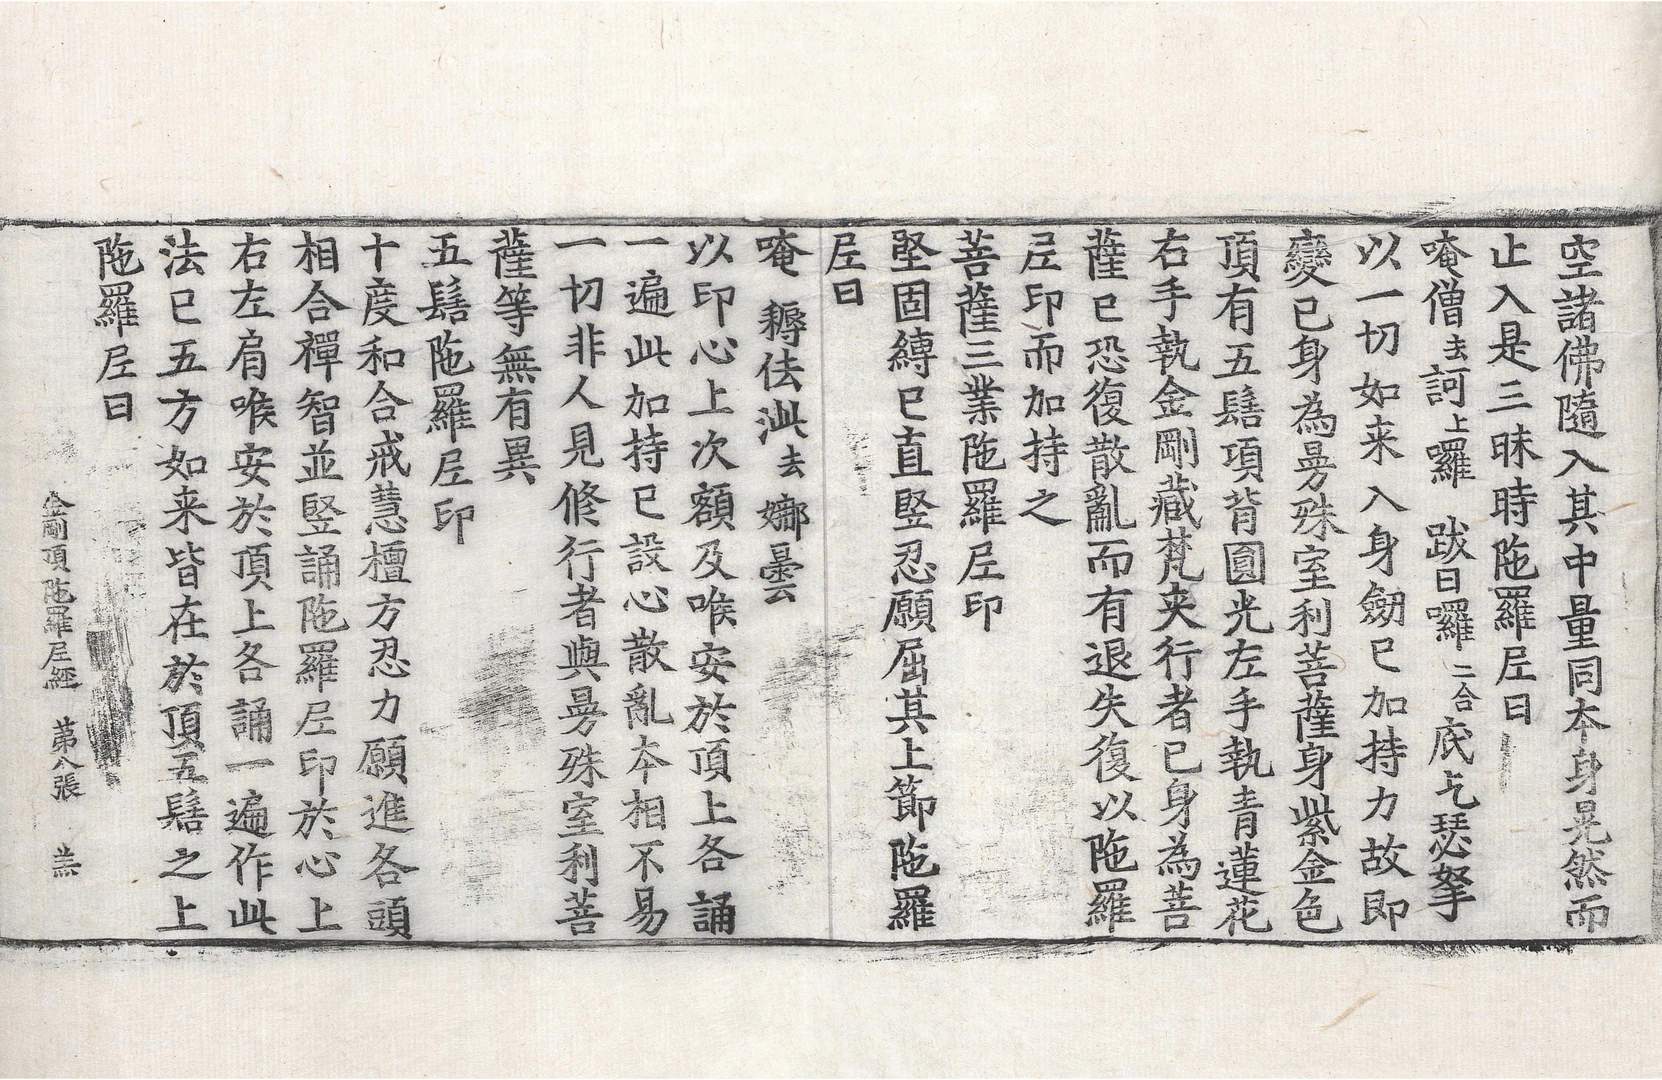 空諸佛隨入其中量同本身晃然而
止入是三昧時陁羅尼曰
唵僧去訶上囉 跋日囉二合底乞瑟拏
以一切如来入身劒已加持力故即
變已身為曼殊室利菩薩身紫金色
頂有五髻項背圓光左手執青蓮花
右手執金剛藏梵夾行者已身為菩
薩已恐復散亂而有退失復以陁羅
尼印而加持之
菩薩三業陁羅尼印
堅固縛已直竪忍願屈其上節陁羅
尼曰
唵 耨佉泚去娜曇
以印心上次額及喉安於頂上各誦
一遍此加持已設心散亂本相不易
一切非人見修行者與曼殊室利菩
薩等無有異
五髻陁羅尼印
十度和合戒慧檀方忍力願進各頭
相合禪智並竪誦陁羅尼印於心上
右左肩喉安於頂上各誦一遍作此
法已五方如来皆在於頂五髻之上
陁羅尼曰
金剛頂陁羅尼經 苐八張